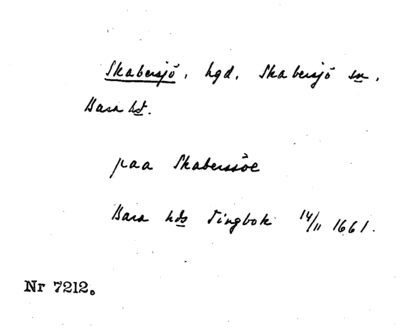 Skabersjö, hgd. Skabersjö sn,
Bara hd.
paa Skaberssöe
Bara hds Tingbok 14/11 1661.
Nr 7212.